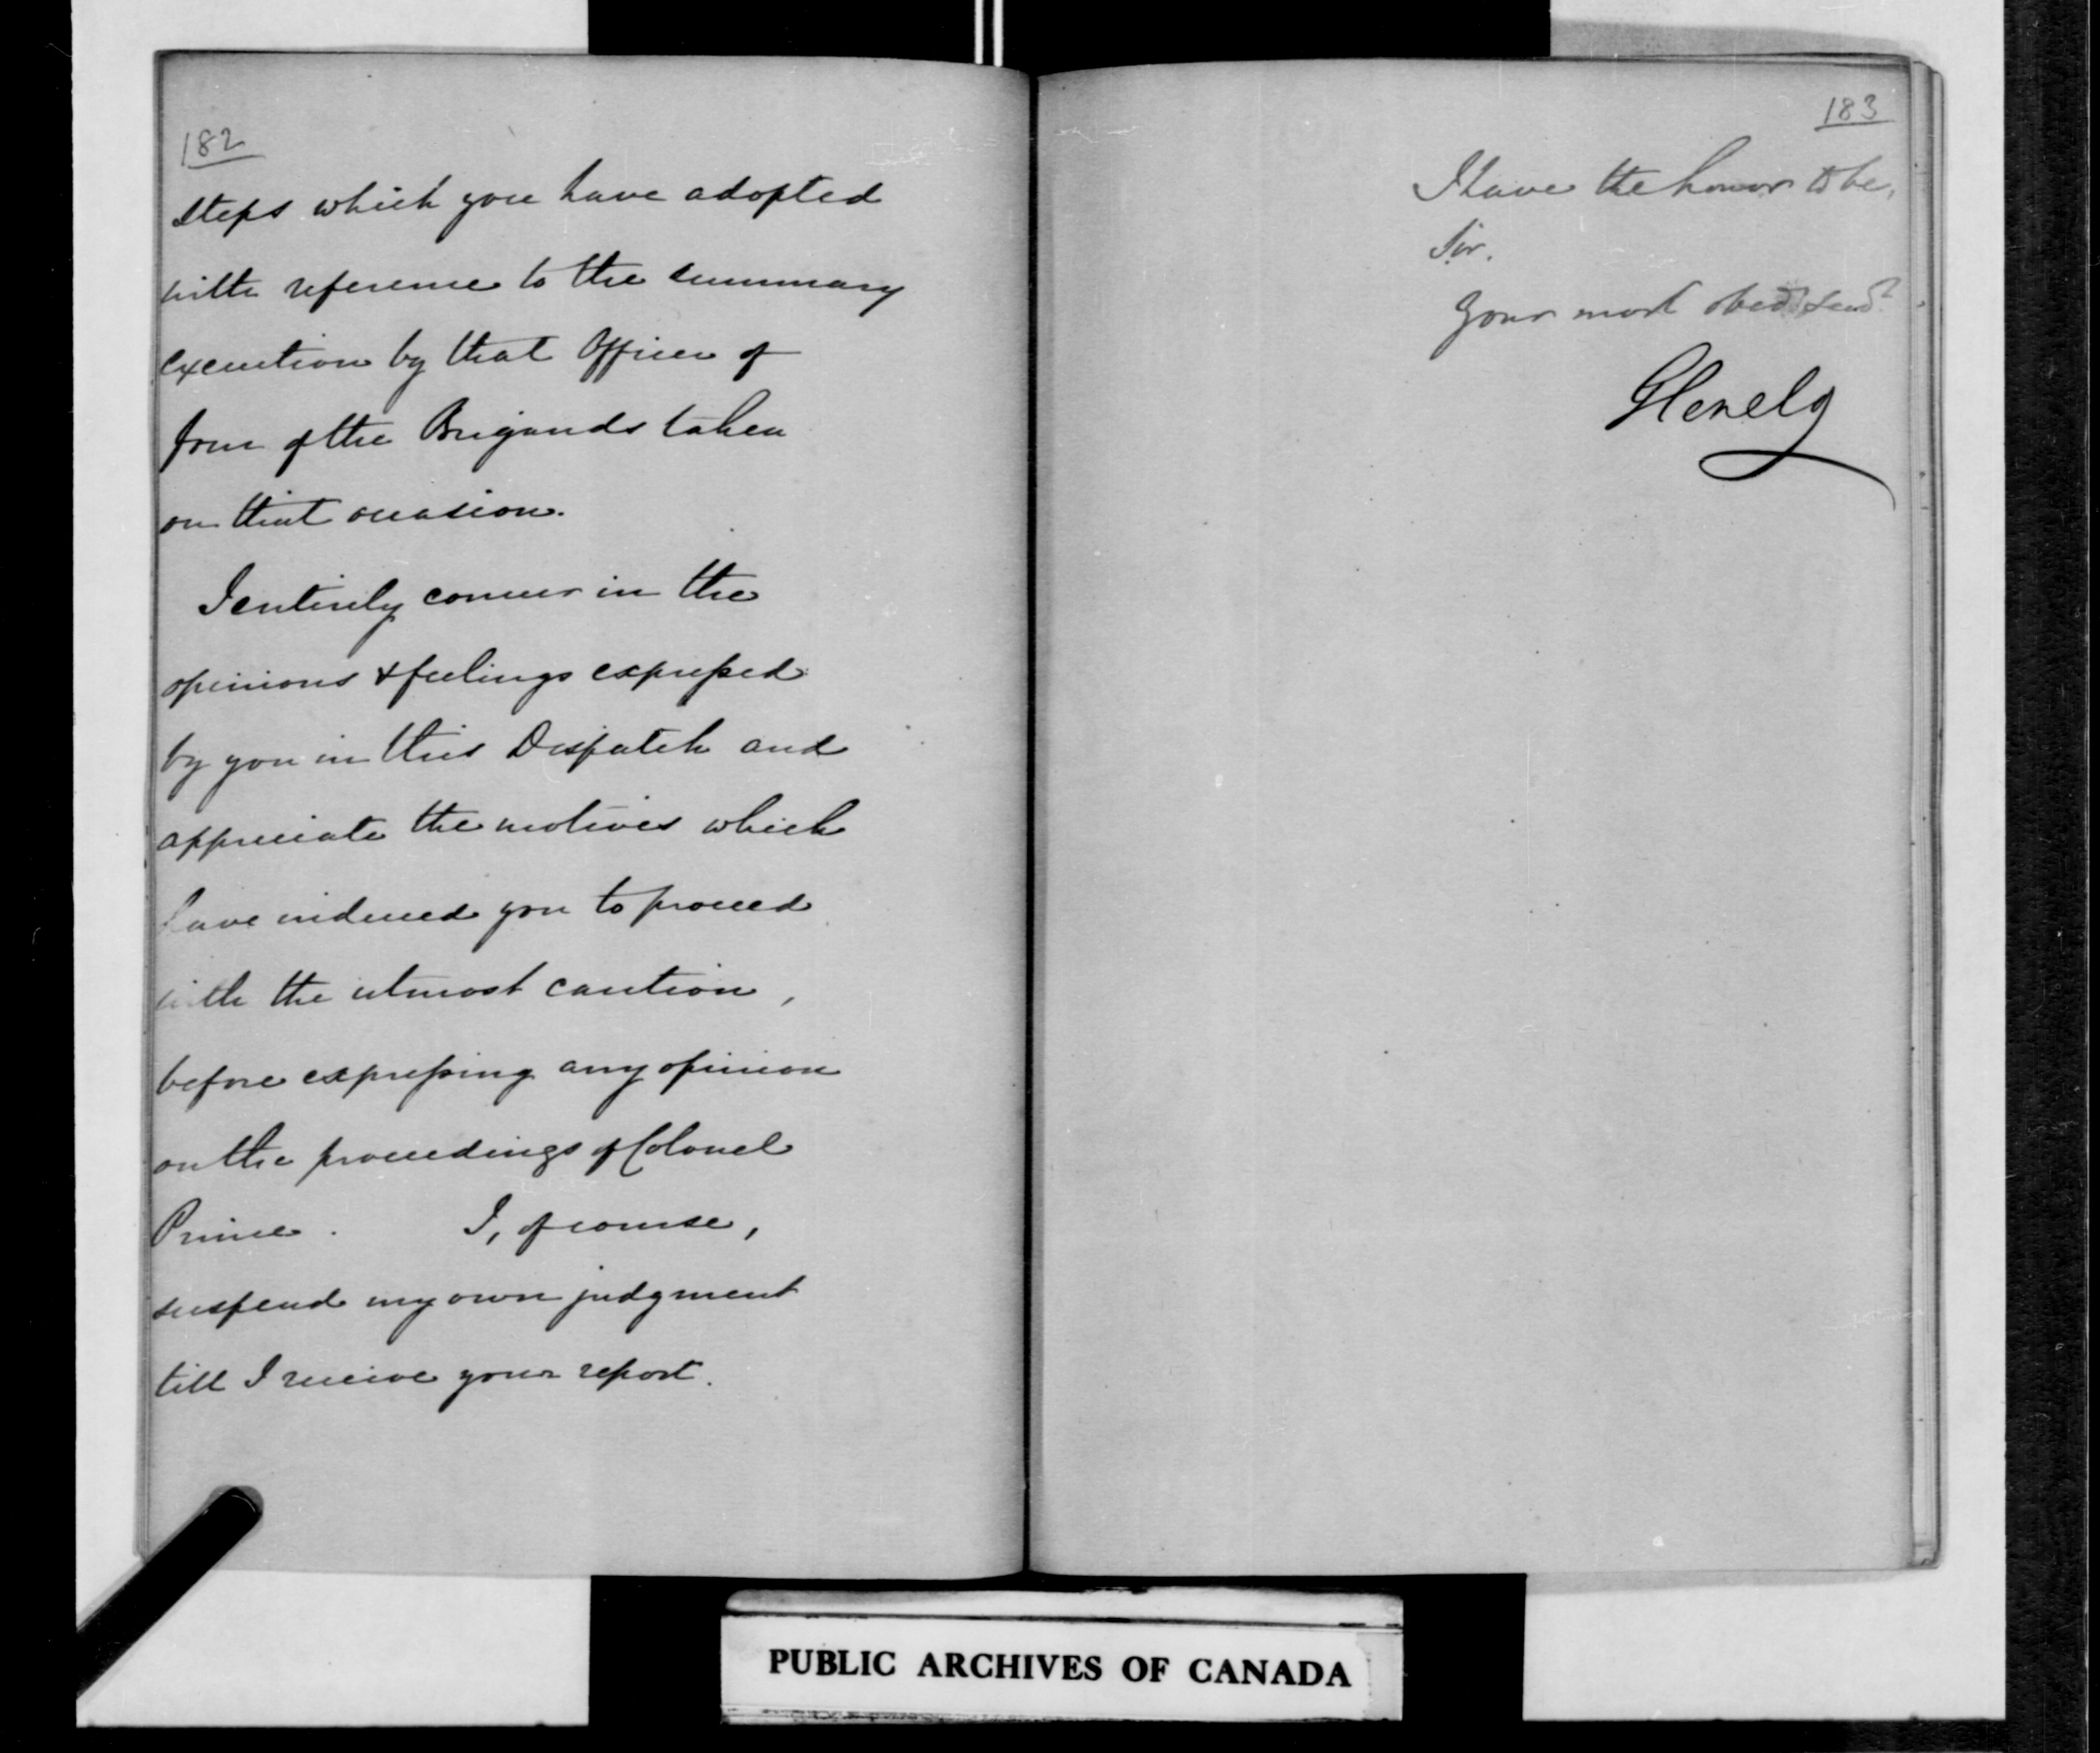 182
steps which you have adopted
with reference to the summary
execution by that Officer of
four of the Brigands taken
on that occasion.
I entirely concur in the
opinions & feelings expressed
by you in this Despatch and
appreciate the motives which
have induced you to proceed
with the utmost caution,
before expressing any opinion
on the proceedings of Colonel
Prince. I, of course,
suspend my own judgment
till I receive your report.
183
I have the honor to be,
Sir,
Your most obedt Servt
Glenelg
PUBLIC ARCHIVES OF CANADA